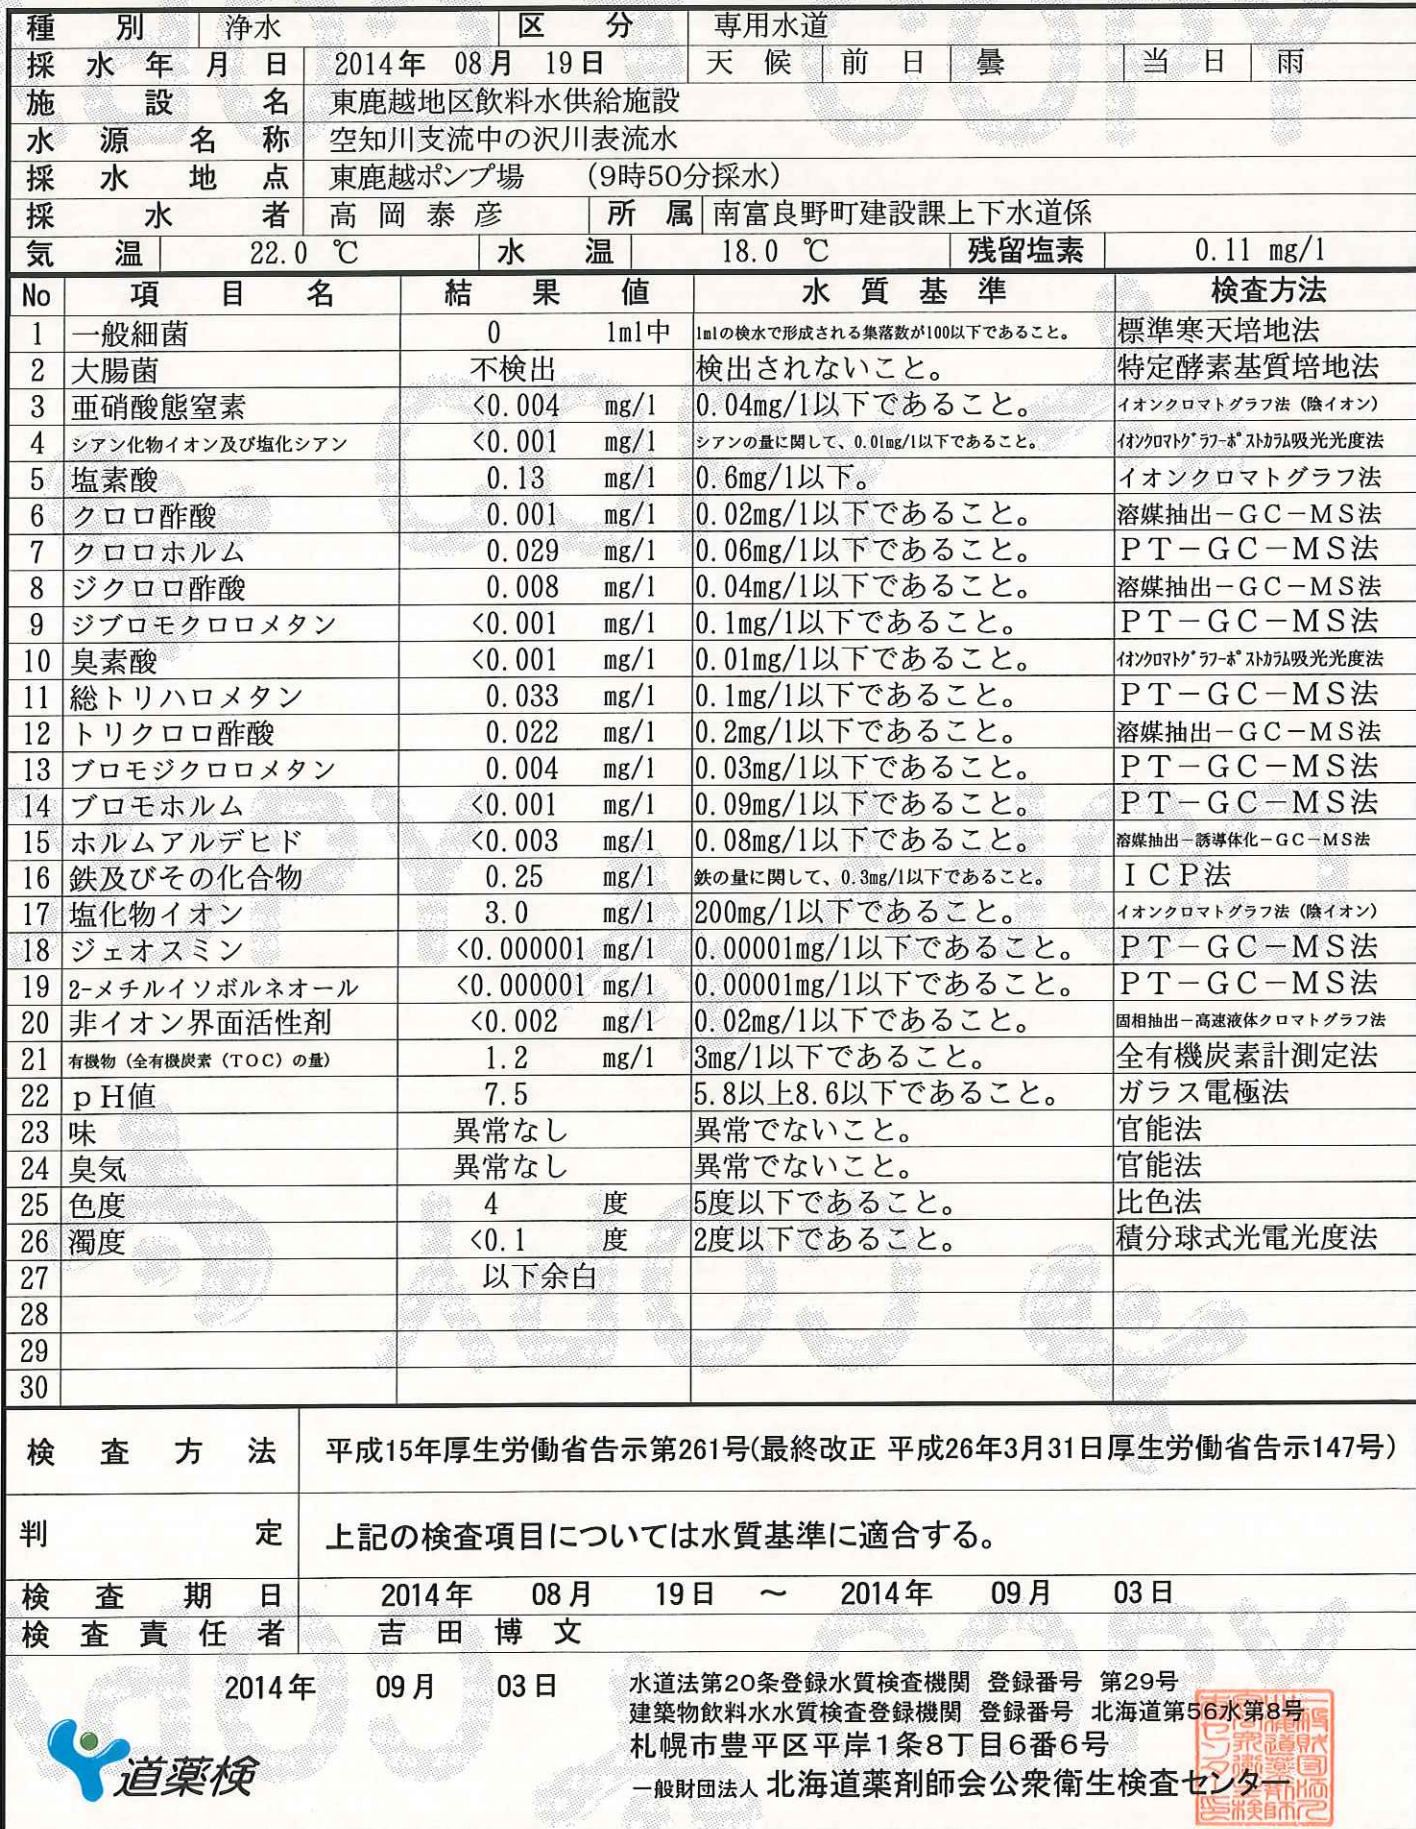 種別 浄水 区分 専用水道
採水年月日 2014年 08月 19日 天候 前日 曇 当日 雨
施設名 東鹿越地区飲料水供給施設
水源名称 空知川支流中の沢川表流水
採水地点 東鹿越ポンプ場 (9時50分採水)
採水者 高岡泰彦 所属 南富良野町建設課上下水道係
気温 22.0 ℃ 水温 18.0 ℃ 残留塩素 0.11 mg/l
No 項目名 結果値 水質基準 検査方法
1 一般細菌 0 1ml中 1mlの検水で形成される集落数が100以下であること。 標準寒天培地法
2 大腸菌 不検出 検出されないこと。 特定酵素基質培地法
3 亜硝酸態窒素 <0.004 mg/l 0.04mg/l以下であること。 イオンクロマトグラフ法（陰イオン）
4 シアン化物イオン及び塩化シアン <0.001 mg/l シアンの量に関して、0.01mg/l以下であること。 ｲｵﾝｸﾛﾏﾄｸﾞﾗﾌｰﾎﾟｽﾄｶﾗﾑ吸光光度法
5 塩素酸 0.13 mg/l 0.6mg/l以下。 イオンクロマトグラフ法
6 クロロ酢酸 0.001 mg/l 0.02mg/l以下であること。 溶媒抽出－ＧＣ－ＭＳ法
7 クロロホルム 0.029 mg/l 0.06mg/l以下であること。 ＰＴ－ＧＣ－ＭＳ法
8 ジクロロ酢酸 0.008 mg/l 0.04mg/l以下であること。 溶媒抽出－ＧＣ－ＭＳ法
9 ジブロモクロロメタン <0.001 mg/l 0.1mg/l以下であること。 ＰＴ－ＧＣ－ＭＳ法
10 臭素酸 <0.001 mg/l 0.01mg/l以下であること。 ｲｵﾝｸﾛﾏﾄｸﾞﾗﾌｰﾎﾟｽﾄｶﾗﾑ吸光光度法
11 総トリハロメタン 0.033 mg/l 0.1mg/l以下であること。 ＰＴ－ＧＣ－ＭＳ法
12 トリクロロ酢酸 0.022 mg/l 0.2mg/l以下であること。 溶媒抽出－ＧＣ－ＭＳ法
13 ブロモジクロロメタン 0.004 mg/l 0.03mg/l以下であること。 ＰＴ－ＧＣ－ＭＳ法
14 ブロモホルム <0.001 mg/l 0.09mg/l以下であること。 ＰＴ－ＧＣ－ＭＳ法
15 ホルムアルデヒド <0.003 mg/l 0.08mg/l以下であること。 溶媒抽出－誘導体化－ＧＣ－ＭＳ法
16 鉄及びその化合物 0.25 mg/l 鉄の量に関して、0.3mg/l以下であること。 ＩＣＰ法
17 塩化物イオン 3.0 mg/l 200mg/l以下であること。 イオンクロマトグラフ法（陰イオン）
18 ジェオスミン <0.000001 mg/l 0.00001mg/l以下であること。 ＰＴ－ＧＣ－ＭＳ法
19 2-メチルイソボルネオール <0.000001 mg/l 0.00001mg/l以下であること。 ＰＴ－ＧＣ－ＭＳ法
20 非イオン界面活性剤 <0.002 mg/l 0.02mg/l以下であること。 固相抽出－高速液体クロマトグラフ法
21 有機物（全有機炭素（ＴＯＣ）の量） 1.2 mg/l 3mg/l以下であること。 全有機炭素計測定法
22 ｐＨ値 7.5 5.8以上8.6以下であること。 ガラス電極法
23 味 異常なし 異常でないこと。 官能法
24 臭気 異常なし 異常でないこと。 官能法
25 色度 4 度 5度以下であること。 比色法
26 濁度 <0.1 度 2度以下であること。 積分球式光電光度法
27 以下余白
28
29
30
検査方法 平成15年厚生労働省告示第261号(最終改正 平成26年3月31日厚生労働省告示147号)
判定 上記の検査項目については水質基準に適合する。
検査期日 2014年 08月 19日 ～ 2014年 09月 03日
検査責任者 吉田博文
2014年 09月 03日
水道法第20条登録水質検査機関 登録番号 第29号
建築物飲料水水質検査登録機関 登録番号 北海道第56水第8号
札幌市豊平区平岸１条８丁目６番６号
一般財団法人 北海道薬剤師会公衆衛生検査センター
道薬検